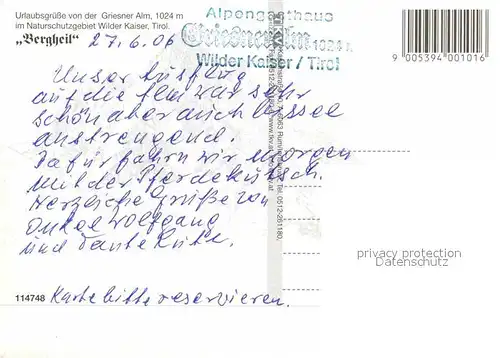 Urlaubsgrüße von der Griesner Alm, 1024 m
im Naturschutzgebiet Wilder Kaiser, Tirol.
„Bergheil“
27.6.06
Alpengasthaus
Griesner Alm 1024 m
Wilder Kaiser / Tirol
9 005394 001016
Unser Ausflug
auf die Alm war sehr
schön aber auch bissel
anstrengend.
Dafür fahrn wir morgen
mit der Pferdekutsch.
Herzliche Grüße von
Onkel Wolfgang
und Tante Ruth.
Tel. 0512-261180,
privacy protection
Datenschutz
114748
Karte bitte reservieren.